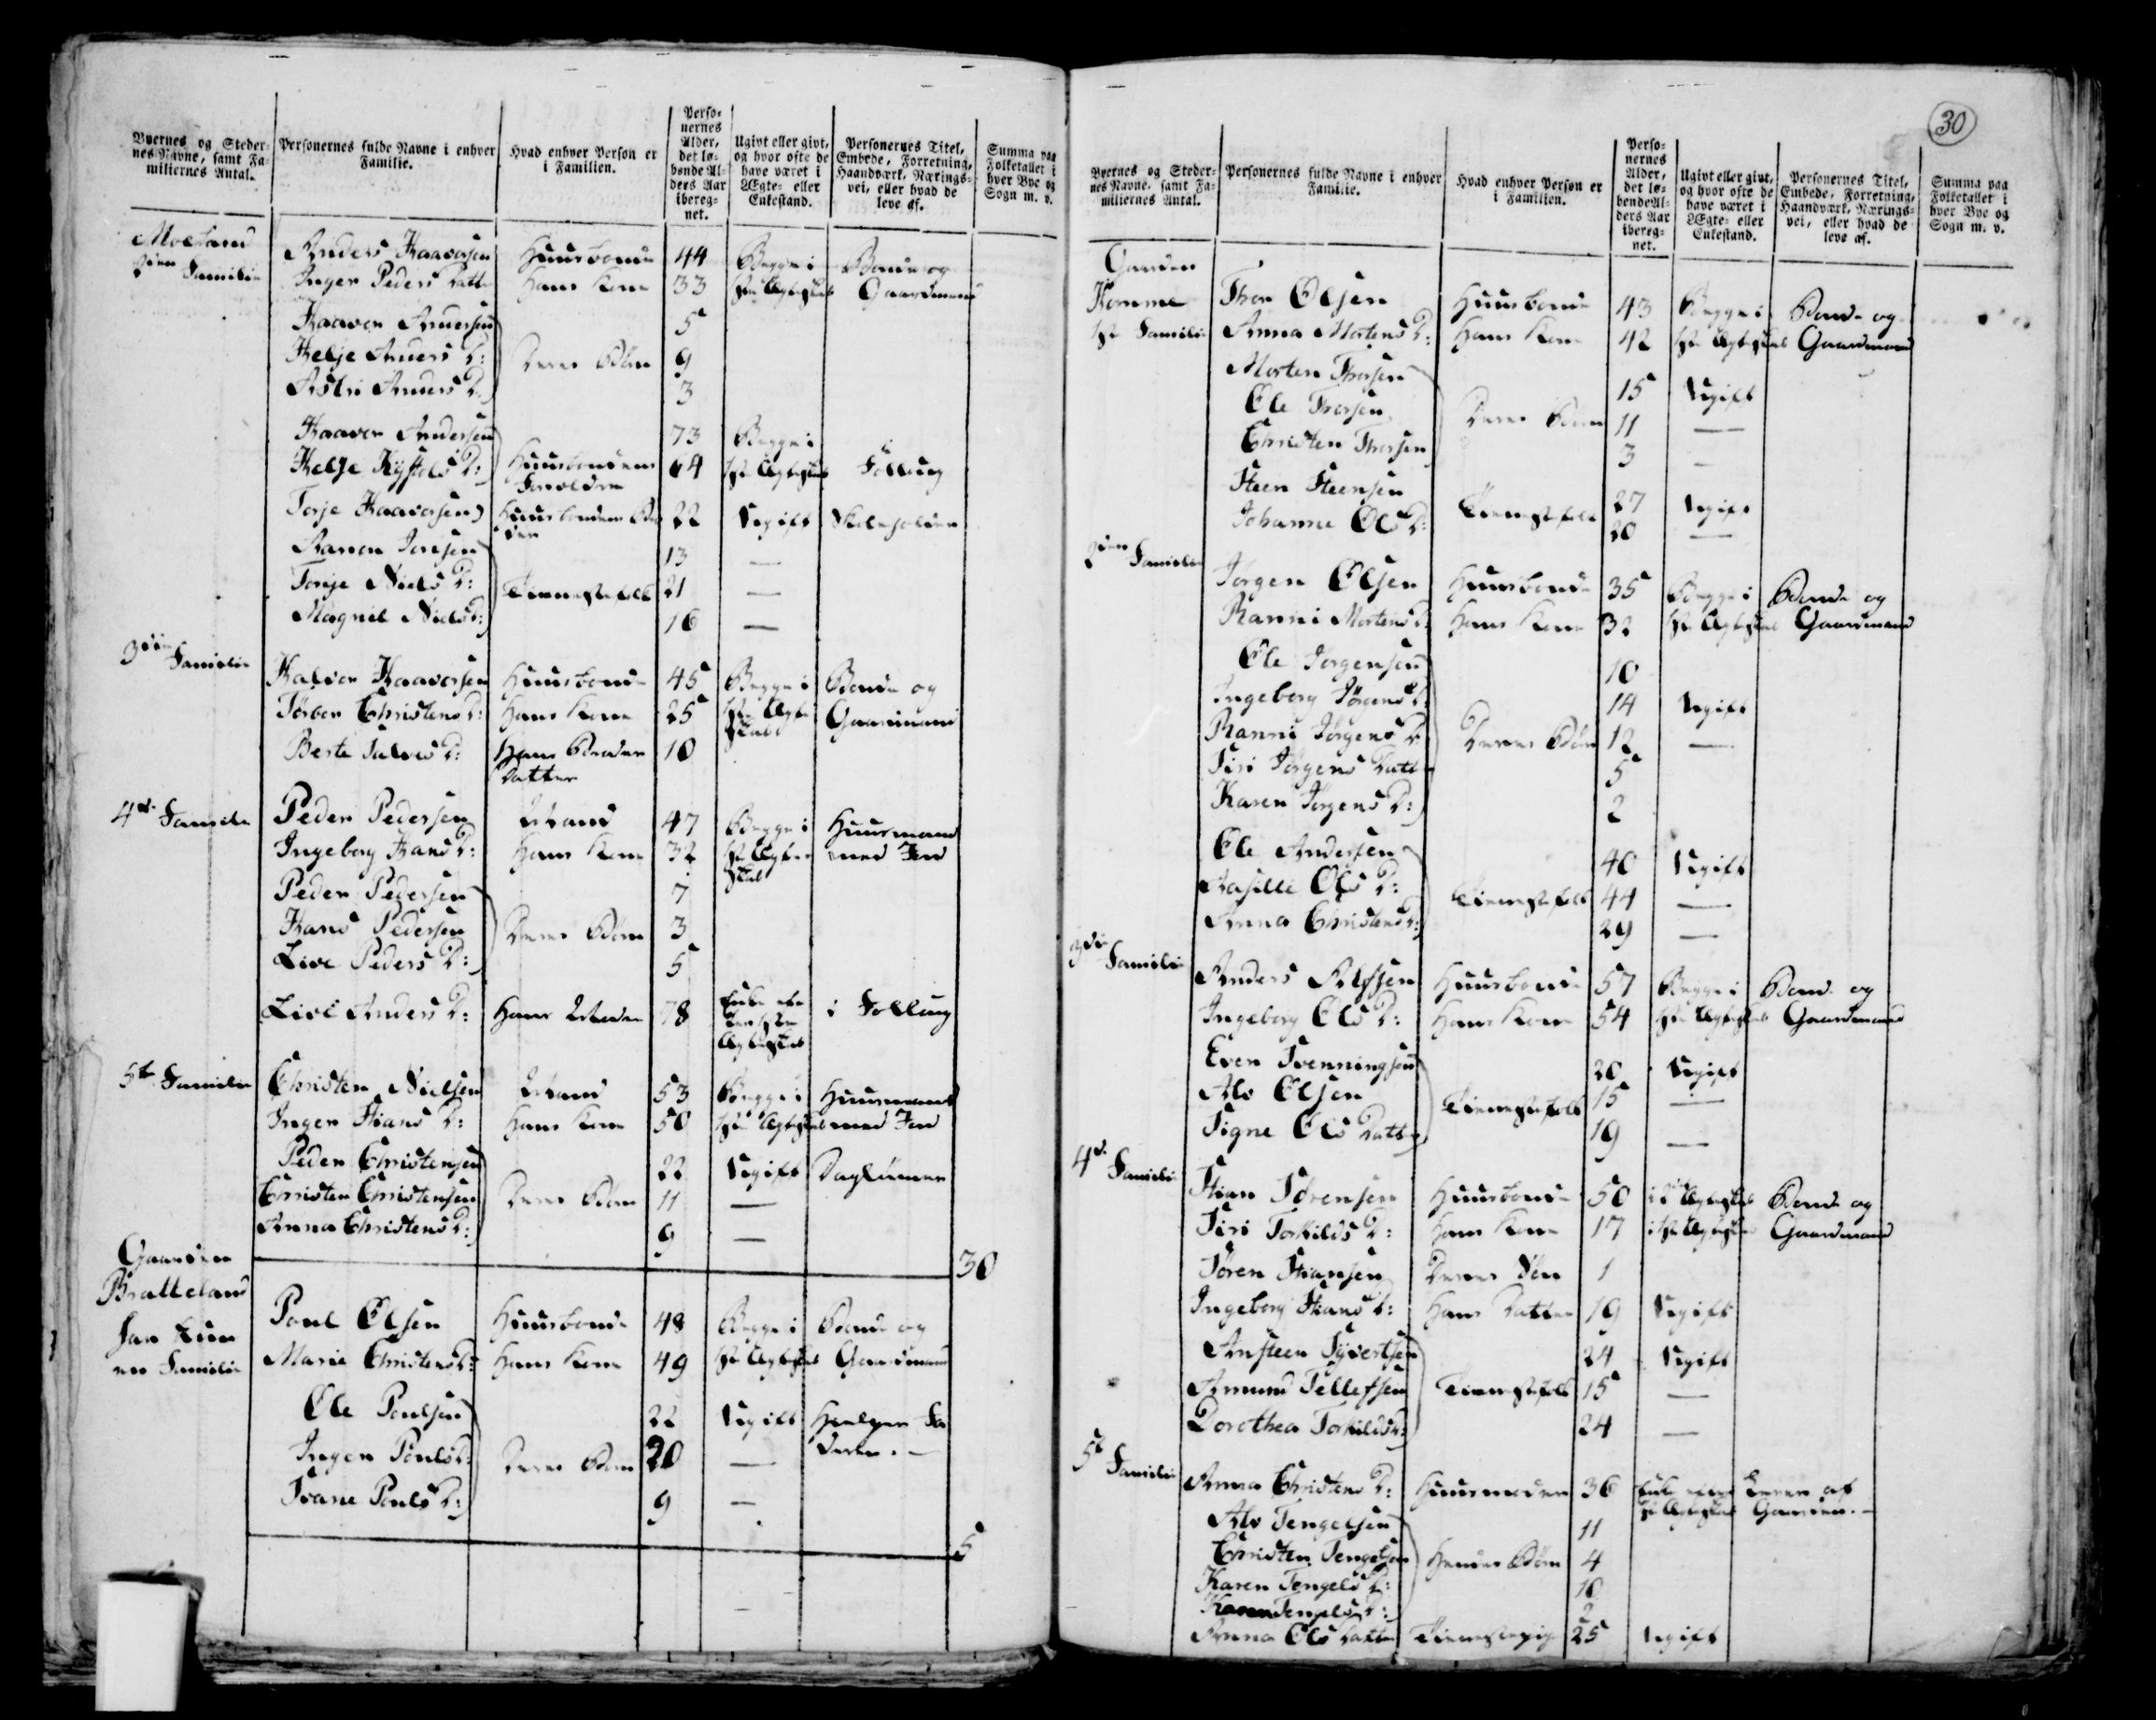 Byernes og Steder-
nes Navne, samt Fa-
miliernes Antal.
Personernes fulde Navne i enhver
Familie.
Hvad enhver Person er
i Familien.
Perso-
nernes
Alder,
det lø-
bende Al-
ders Aar
ibereg-
net.
Ugivt eller givt,
og hvor ofte de
have været i
Ægte- eller
Enkestand.
Personernes Titel,
Embede, Forretning,
Haandværk, Nærings-
vei, eller hvad de
leve af.
Summa paa
Folketallet i
hver Bye og
Sogn m. v.
Moeland
2den Familie
Anders Haavorsen Huusbonde 44 Begge i Bonde og
Inger Peders Datter Hans Kone 33 1ste Ægteskab Gaardmand
Haavor Andersen 5
Helje Anders D: Deres Børn 9
Astri Anders D: 3
Haavor Andersen 73 Begge i
Helje D: Huusbondens 64 1ste Ægteskab Follaug
Forældre
Torje Haavorsen Huusbondens Bro 22 Ugift
der
Aanon Jonsen 13 —
Torije Niels D: Tienestefolk 21 —
Magnil Niels D: 16 —
3die Familie
Halvor Haavorsen Huusbonde 45 Begge i Bonde og
Tørber Christens D: Hans Kone 25 1ste Ægte Gaardmand
skab
Berte D: Hans Broder 10
Datter
4de Familie Peder Pedersen Mand 47 Begge i Huusmand
Ingeborg Hans D: Hans Kone 32 1ste Ægte med Jord
skab
Peder Pedersen 7
Hans Pedersen Deres Børn 3
Live Peders D: 5
Live Anders D: Hans Moder 78 Enke efter i Follaug
den 1ste
Ægteskab
5te Familie Christen Nielsen Mand 53 Begge i Huusmand
Inger Stians D: Hans Kone 50 1ste Ægteskab med Jord
Peder Christensen 22 Ugift Daglønner
Christen Christensen Deres Børn 11 —
Anna Christens D: 9 —
30
Gaarden
Bratteland
har Kun
en Familie
Poul Olsen Huusbonde 48 Begge i Bonde og
Marie Christens D: Hans Kone 49 1ste Ægteskab Gaardmand
Ole Poulsen 22 Ugift Hielper Fa
deren. —
Inger Pouls D: Deres Børn 20 —
Svane Pouls D: 9 —
5
30
Byernes og Steder-
nes Navne, samt Fa-
miliernes Antal.
Personernes fulde Navne i enhver
Familie.
Hvad enhver Person er
i Familien.
Perso-
nernes
Alder,
det lø-
bende Al-
ders Aar
ibereg-
net.
Ugivt eller givt,
og hvor ofte de
have været i
Ægte- eller
Enkestand.
Personernes Titel,
Embede, Forretning,
Haandværk, Nærings-
vei, eller hvad de
leve af.
Summa paa
Folketallet i
hver Bye og
Sogn m. v.
Gaarden
Homme Thor Olsen Huusbonde 43 Begge i Bonde og
1ste Familie Anna Mortens D: Hans Kone 42 1ste Ægteskab Gaardmand
Morten Thorsen 15 Ugift
Ole Thorsen Deres Børn 11 —
Christen Thorsen 3 —
Steen Steensen 27 Ugift
Johanne Ols D: Tienestefolk 20 —
2den Familie Jørgen Olsen Huusbonde 35 Begge i Bonde og
Ranni Mortens D: Hans Kone 32 1ste Ægteskab Gaardmand
Ole Jørgensen 10
Ingeborg Jørgens D: 14 Ugift
Ranni Jørgens D: Deres Børn 12 —
Siri Jørgens Datter 5
Karen Jørgens D: 2
Ole Andersen 40 Ugift
Aasille Ols D: Tienestefolk 44 —
Anna Christens D: 29 —
3die Familie Anders Alfsen Huusbonde 57 Begge i Bonde og
Ingeborg Ols D: Hans Kone 54 1ste Ægteskab Gaardmand
Even Svenningsen 20 Ugift
Alv Olsen Tienestefolk 15 —
Signe Ols Datter 19 —
4de Familie Stian Sørensen Huusbonde 50 i 2det Ægteskab Bonde og
Siri Torkilds D: Hans Kone 17 i 1ste Ægteskab Gaardmand
Søren Stiansen Deres Søn 1
Ingeborg Stians D: Hans Datter 19 Ugift
Ansteen Syvertsen 24 Ugift
Amund Tellefsen Tienestefolk 15 —
Dorothea Torkilds D: 24 —
5te Familie Anna Christens D: Huusmoder 36 Enke efter Lever af
1ste Ægteskab Gaarden. —
Alv Tengelsen 11
Christen Tengelsen Hendes Børn 4
Karen Tengels D: 10
Karen Tengels D: 2
Anna Ols Datter Tienestepige 25 Ugift